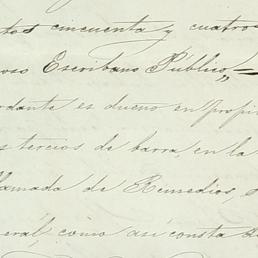 tos cincuenta y cuatro
oso Escribano Público,,
rdante es dueno en propie
s tercios de barra, en la
llamada de Remedios, s
eral, como asi consta de